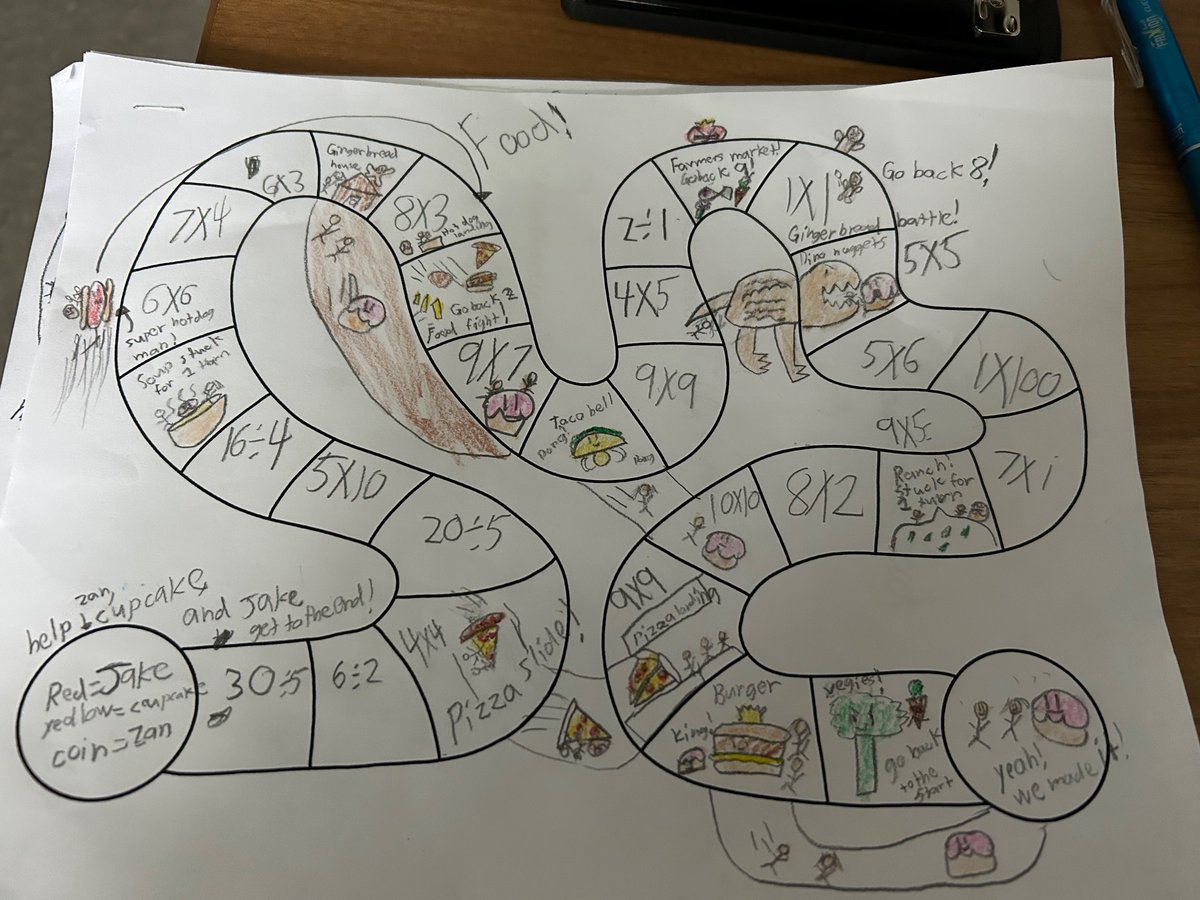 Food!
help zan, cupcake
and Jake
get to the end!
Red=Jake
yellow=cupcake
coin=Zan
30÷5
6÷2
4x4
Pizza Slide!
20÷5
5x10
16÷4
Soup stuck
for 1 turn
6x6
super hotdog
man!
7x4
6x3
Gingerbread
house
8x3
Hotdog
landing
Go back 2
Food fight!
9x7
Taco bell
Dong!
Dong
9x9
4x5
2÷1
Farmers market!
Go back 9!
1x1
Go back 8!
Gingerbread battle!
Dino nuggets
5x5
5x6
1x100
9x5
7x1
Ranch!
stuck for
1 turn
8x2
10x10
9x9
pizza landing
Burger
King!
vegies!
go back
to the
start
yeah!
we made it!